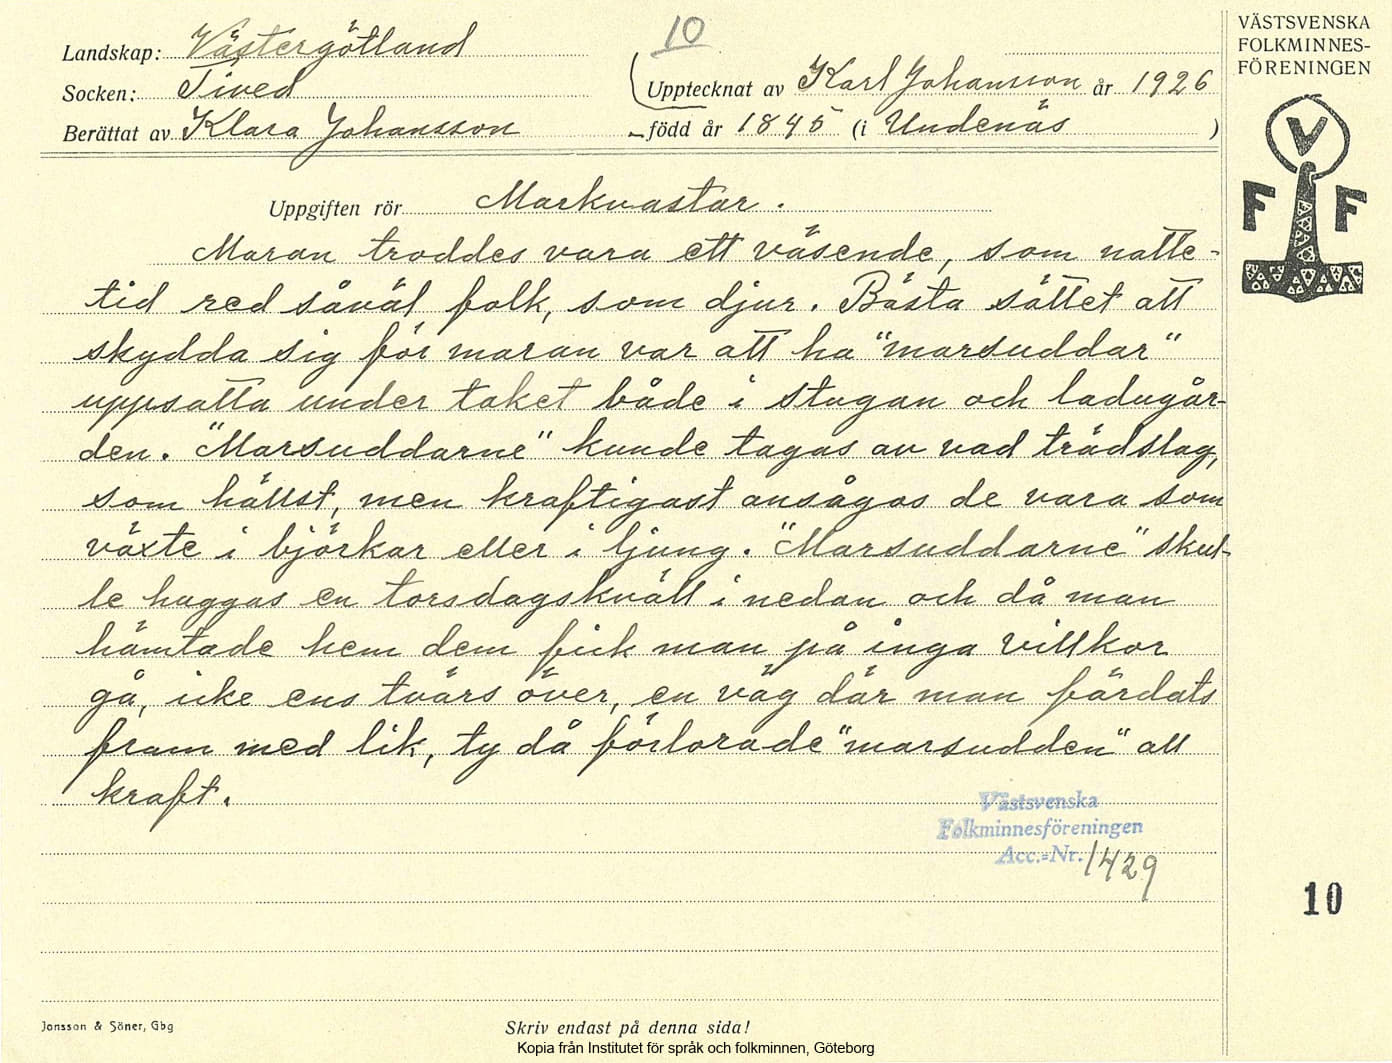 10
Landskap: Västergötland
Socken: Tived
Berättat av Klara Johansson
Upptecknat av Karl Johansson år 1926
född år 1845 (i Undenäs )
VÄSTSVENSKA
FOLKMINNES-
FÖRENINGEN
V
F F
Uppgiften rör Markvastar.
Maran troddes vara ett väsende, som natte-
tid red såväl folk, som djur. Bästa sättet att
skydda sig för maran var att ha "marsuddar"
uppsatta under taket både i stugan och ladugår-
den. "Marsuddarne" kunde tagas av vad trädslag,
som hällst, men kraftigast ansågos de vara som
växte i björkar eller i ljung. "Marsuddarne" skul-
le huggas en torsdagskväll i nedan och då man
hämtade hem dem fick man på inga villkor
gå, icke ens tvärs över, en väg där man färdats
fram med lik, ty då förlorade "marsudden" all
kraft.
Västsvenska
Folkminnesföreningen
Acc.=Nr. 1429
10
Jonsson & Söner, Gbg
Skriv endast på denna sida!
Kopia från Institutet för språk och folkminnen, Göteborg